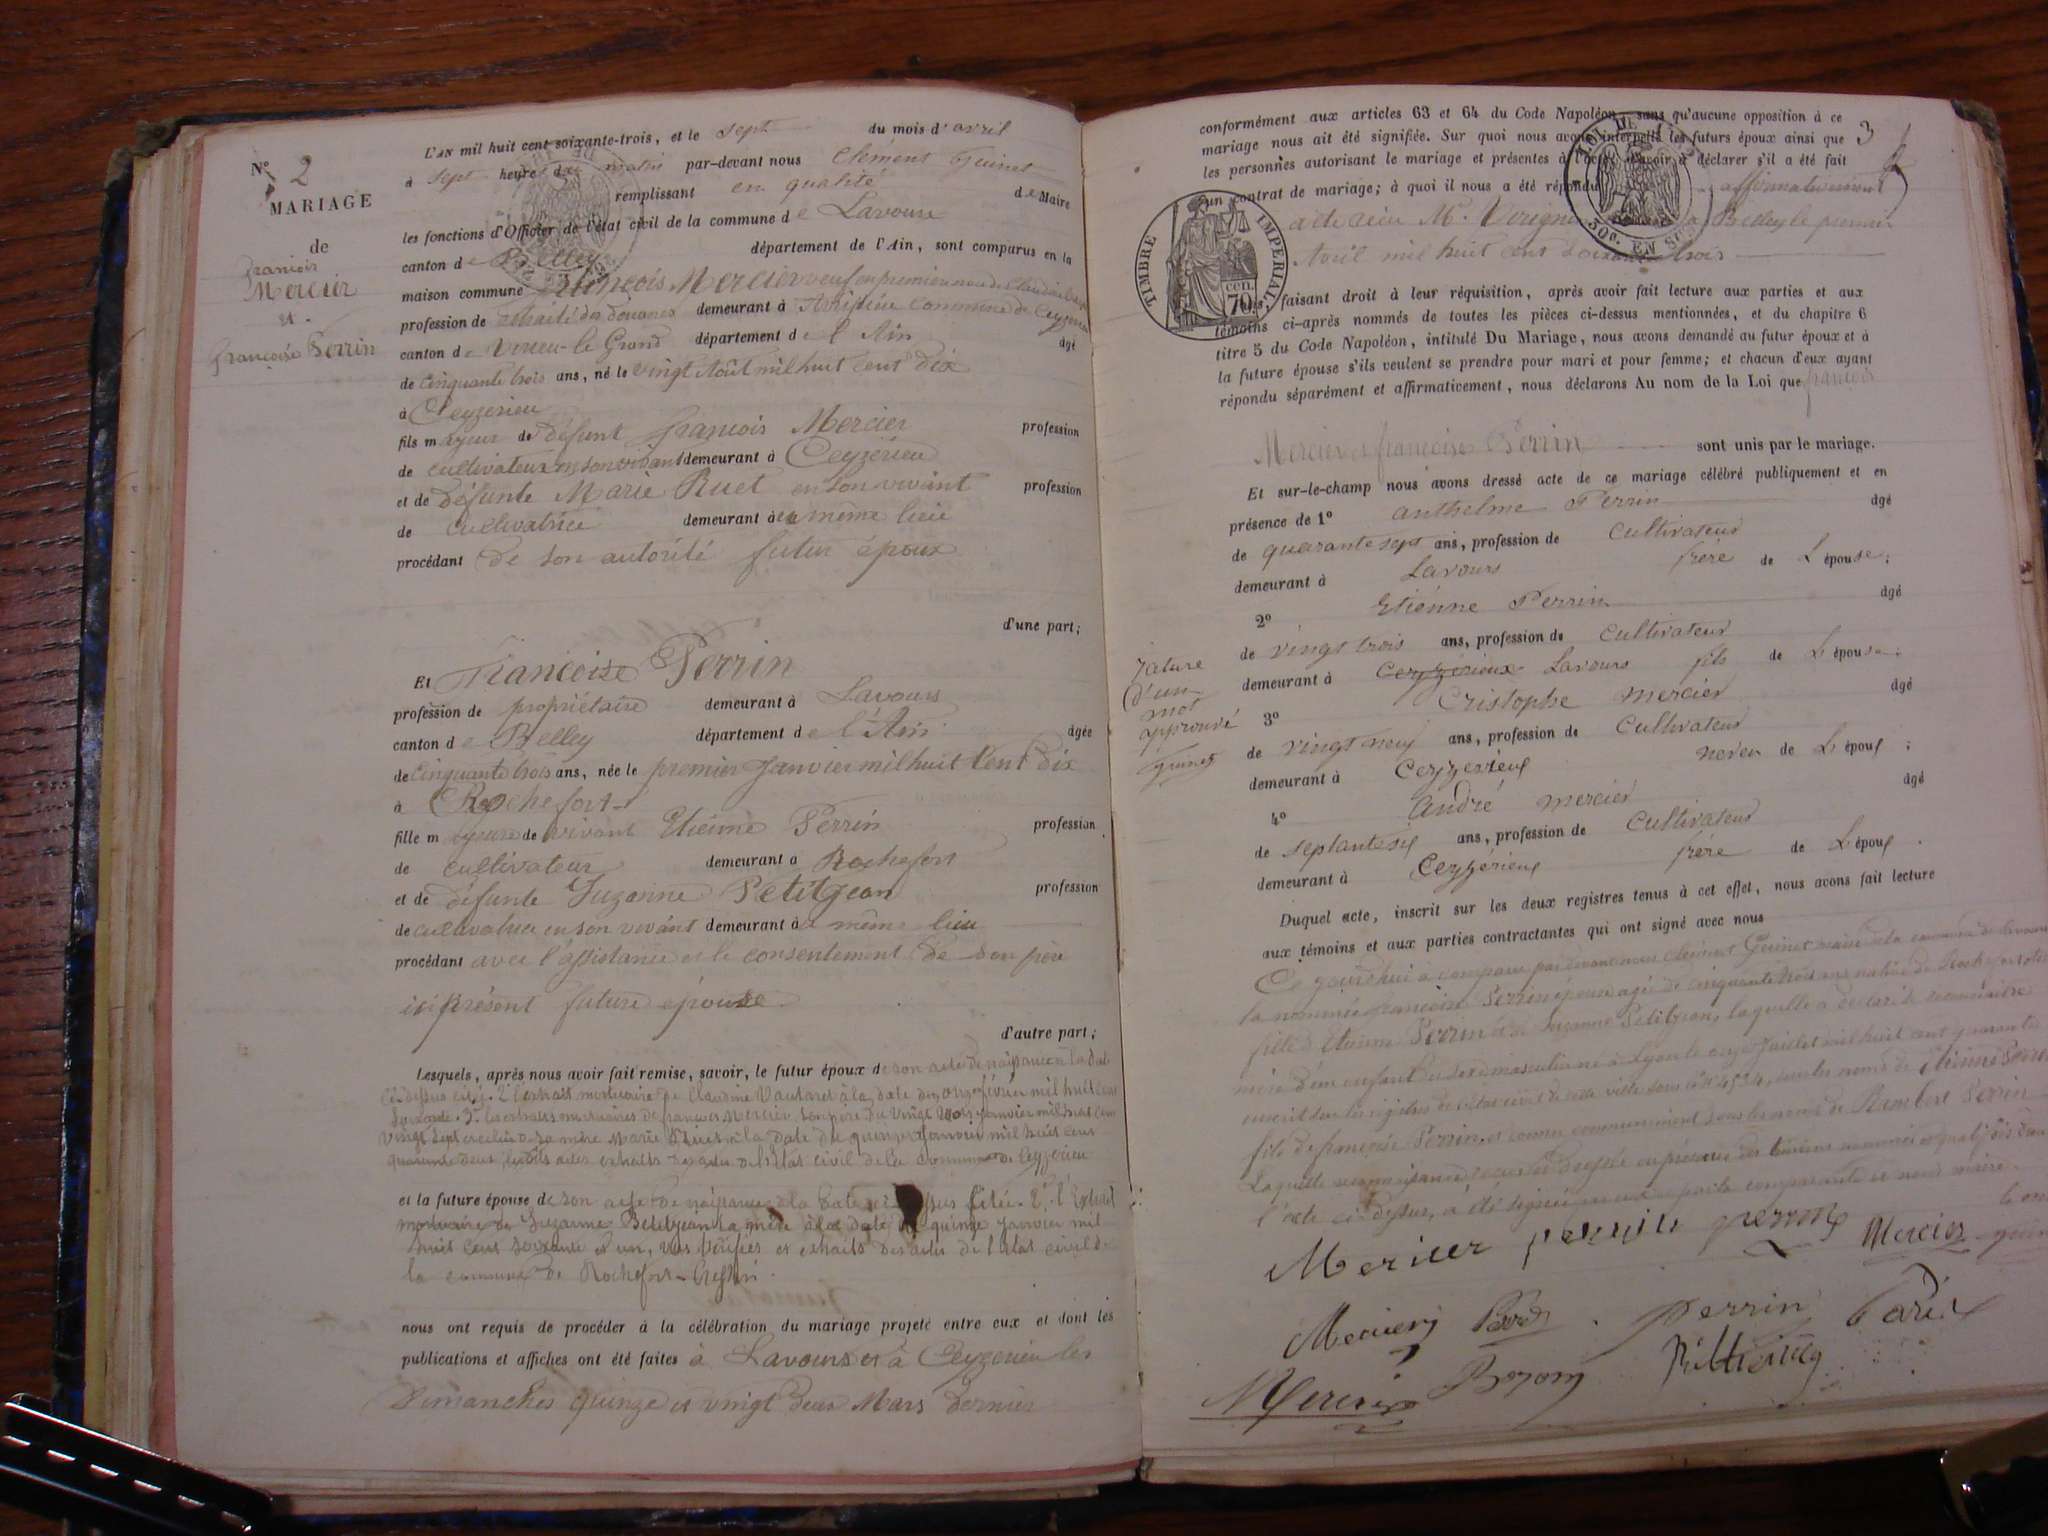 N° 2
MARIAGE
de
François
Mercier
et
françoise Perrin
L'AN mil huit cent soixante-trois, et le sept du mois d'avril
à sept heures du matin par-devant nous Clément Guinet
remplissant en qualité de Maire
les fonctions d'Officier de l'état civil de la commune de Lavours
canton de Belley département de l'Ain, sont comparus en la
maison commune François Mercier veuf en premier
profession de retraité des douanes demeurant à commune de Ceyzerieu
canton de Virieu-le Grand département de l'Ain âgé
de cinquante trois ans, né le vingt Août mil huit cent dix
à Ceyzerieu
fils mageur de défunt françois Mercier profession
de cultivateur en son vivant demeurant à Ceyzérieu
et de défunte Marie Ruet en son vivant profession
de cultivatrice demeurant à même lieu
procédant de son autorité futur époux
d'une part;
Et Françoise Perrin
profession de propriétaire demeurant à Lavours
canton de Belley département de l'Ain âgée
de cinquante trois ans, née le premier Janvier mil huit cent dix
à Rochefort
fille mageure de vivant Etienne Perrin profession
de cultivateur demeurant à Rochefort
et de défunte Suzanne Petitjean profession
de cultivatrice en son vivant demeurant à même lieu
procédant avec l'assistance et le consentement de son père
ici présent future épouse
d'autre part;
Lesquels, après nous avoir fait remise, savoir, le futur époux de son acte de naissance à la date
ci-dessus citée. 2° l'extrait mortuaire de Claudine à la date du onze février mil huit cent
soixante. 3° les extraits mortuaires de françois Mercier son père du vingt trois janvier mil huit cent
vingt sept et celui de sa mère Marie Ruet à la date du quinze janvier mil huit cent
quarante deux, extraits des actes de l'état civil de la commune de Ceyzerieu
et la future épouse de son acte de naissance à la date ci-dessus citée. 2° l'Extrait
mortuaire de Suzanne Petitjean sa mère à la date du quinze janvier mil
huit cent soixante et un, vus vérifiés et extraits des actes de l'état civil de
la commune de Rochefort-Cressin.
nous ont requis de procéder à la célébration du mariage projeté entre eux et dont les
publications et affiches ont été faites à Lavours et à Ceyzerieu les
Dimanches quinze et vingt deux Mars dernier
3
conformément aux articles 63 et 64 du Code Napoléon, sans qu'aucune opposition à ce
mariage nous ait été signifiée. Sur quoi nous avons interpellé les futurs époux ainsi que
les personnes autorisant le mariage et présentes à l'acte, d'avoir à déclarer s'il a été fait
un contrat de mariage; à quoi il nous a été répondu affirmativement
acte reçu Mr. à Belley le premier
Avril mil huit cent soixante trois
LOI DE
30c. EN SUS
TIMBRE IMPERIAL
70 cen.
faisant droit à leur réquisition, après avoir fait lecture aux parties et aux
témoins ci-après nommés de toutes les pièces ci-dessus mentionnées, et du chapitre 6
titre 5 du Code Napoléon, intitulé Du Mariage, nous avons demandé au futur époux et à
la future épouse s'ils veulent se prendre pour mari et pour femme; et chacun d'eux ayant
répondu séparément et affirmativement, nous déclarons Au nom de la Loi que françois
Mercier et françoise Perrin sont unis par le mariage.
Et sur-le-champ nous avons dressé acte de ce mariage célébré publiquement et en
présence de 1° anthelme Perrin âgé
de quarante sept ans, profession de cultivateur
demeurant à Lavours frère de L'épouse;
2° Etiénne Perrin âgé
de vingt trois ans, profession de cultivateur
demeurant à Ceyzérieux Lavours fils de L'épouse;
3° Cristophe mercier âgé
de vingt neuf ans, profession de cultivateur
demeurant à Ceyzerieux neveu de L'époux;
4° André mercier âgé
de septante six ans, profession de cultivateur
demeurant à Ceyzérieux frère de L'époux.
rature
d'un
mot
approuvé
guinet
Duquel acte, inscrit sur les deux registres tenus à cet effet, nous avons fait lecture
aux témoins et aux parties contractantes qui ont signé avec nous
Ce jourd'hui à comparu par devant nous Clément Guinet maire de la commune de Lavours
la nommée françoise Perrin épouse agée de cinquante trois ans native de Rochefort
fille d'Etienne Perrin et de Suzanne Petitjean, laquelle a déclaré se reconnaitre
mère d'un enfant du sexe masculin né à Lyon le onze Juillet mil huit cent quarante
inscrit sur les registres de l'état civil de cette ville sous le n° 4534, sous les noms de Etienne Perrin
fils de françoise Perrin et connu communément sous les noms de Rambert Perrin
Laquelle reconnaissance dressée en présence des témoins nommés
l'acte ci-dessus, a été signée par la comparante et nous maire.
Mercier Perrin Mercier
Perrin
Mercier Bozon